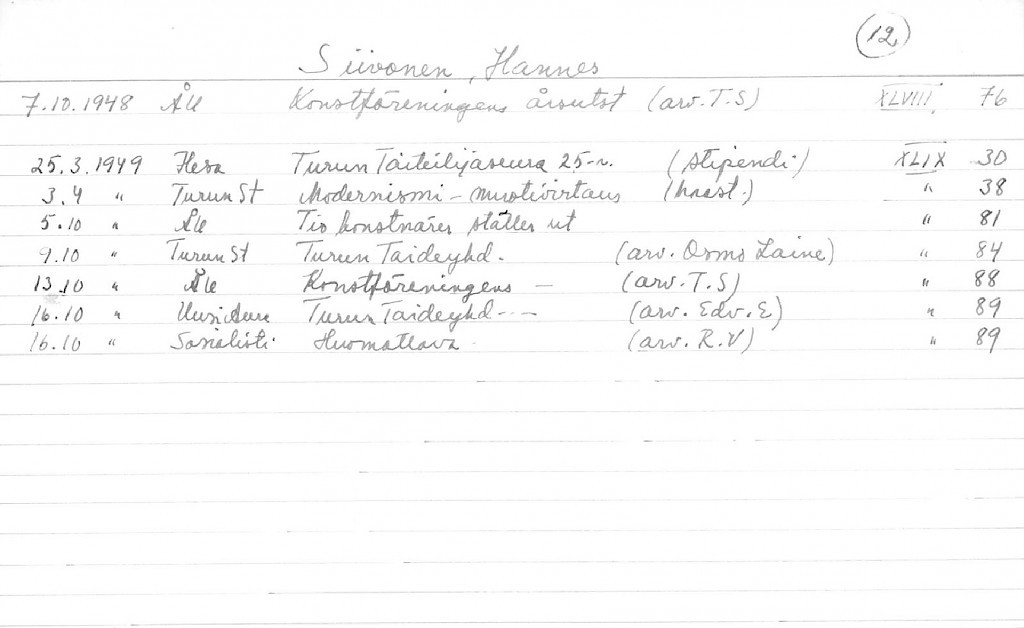 12
Siivonen, Hannes
7.10.1948 ÅU Konstföreningens årsutst (arv. T.S) XLVIII 76
25.3.1949 Hesa Turun Taiteilijaseura 25-v. (stipendi.) XLIX 30
3.4 " Turun St Modernismi - muotivirtaus (haast.) " 38
5.10 " ÅU Tio konstnärer ställer ut " 81
9.10 " Turun St Turun Taideyhd. (arv. Osmo Laine) " 84
13.10 " ÅU Konstföreningens - (arv. T.S) " 88
16.10 " Uusi Aura Turun Taideyhd - - (arv. Edv. E) " 89
16.10 " Sosialisti Huomattava (arv. R.V) " 89